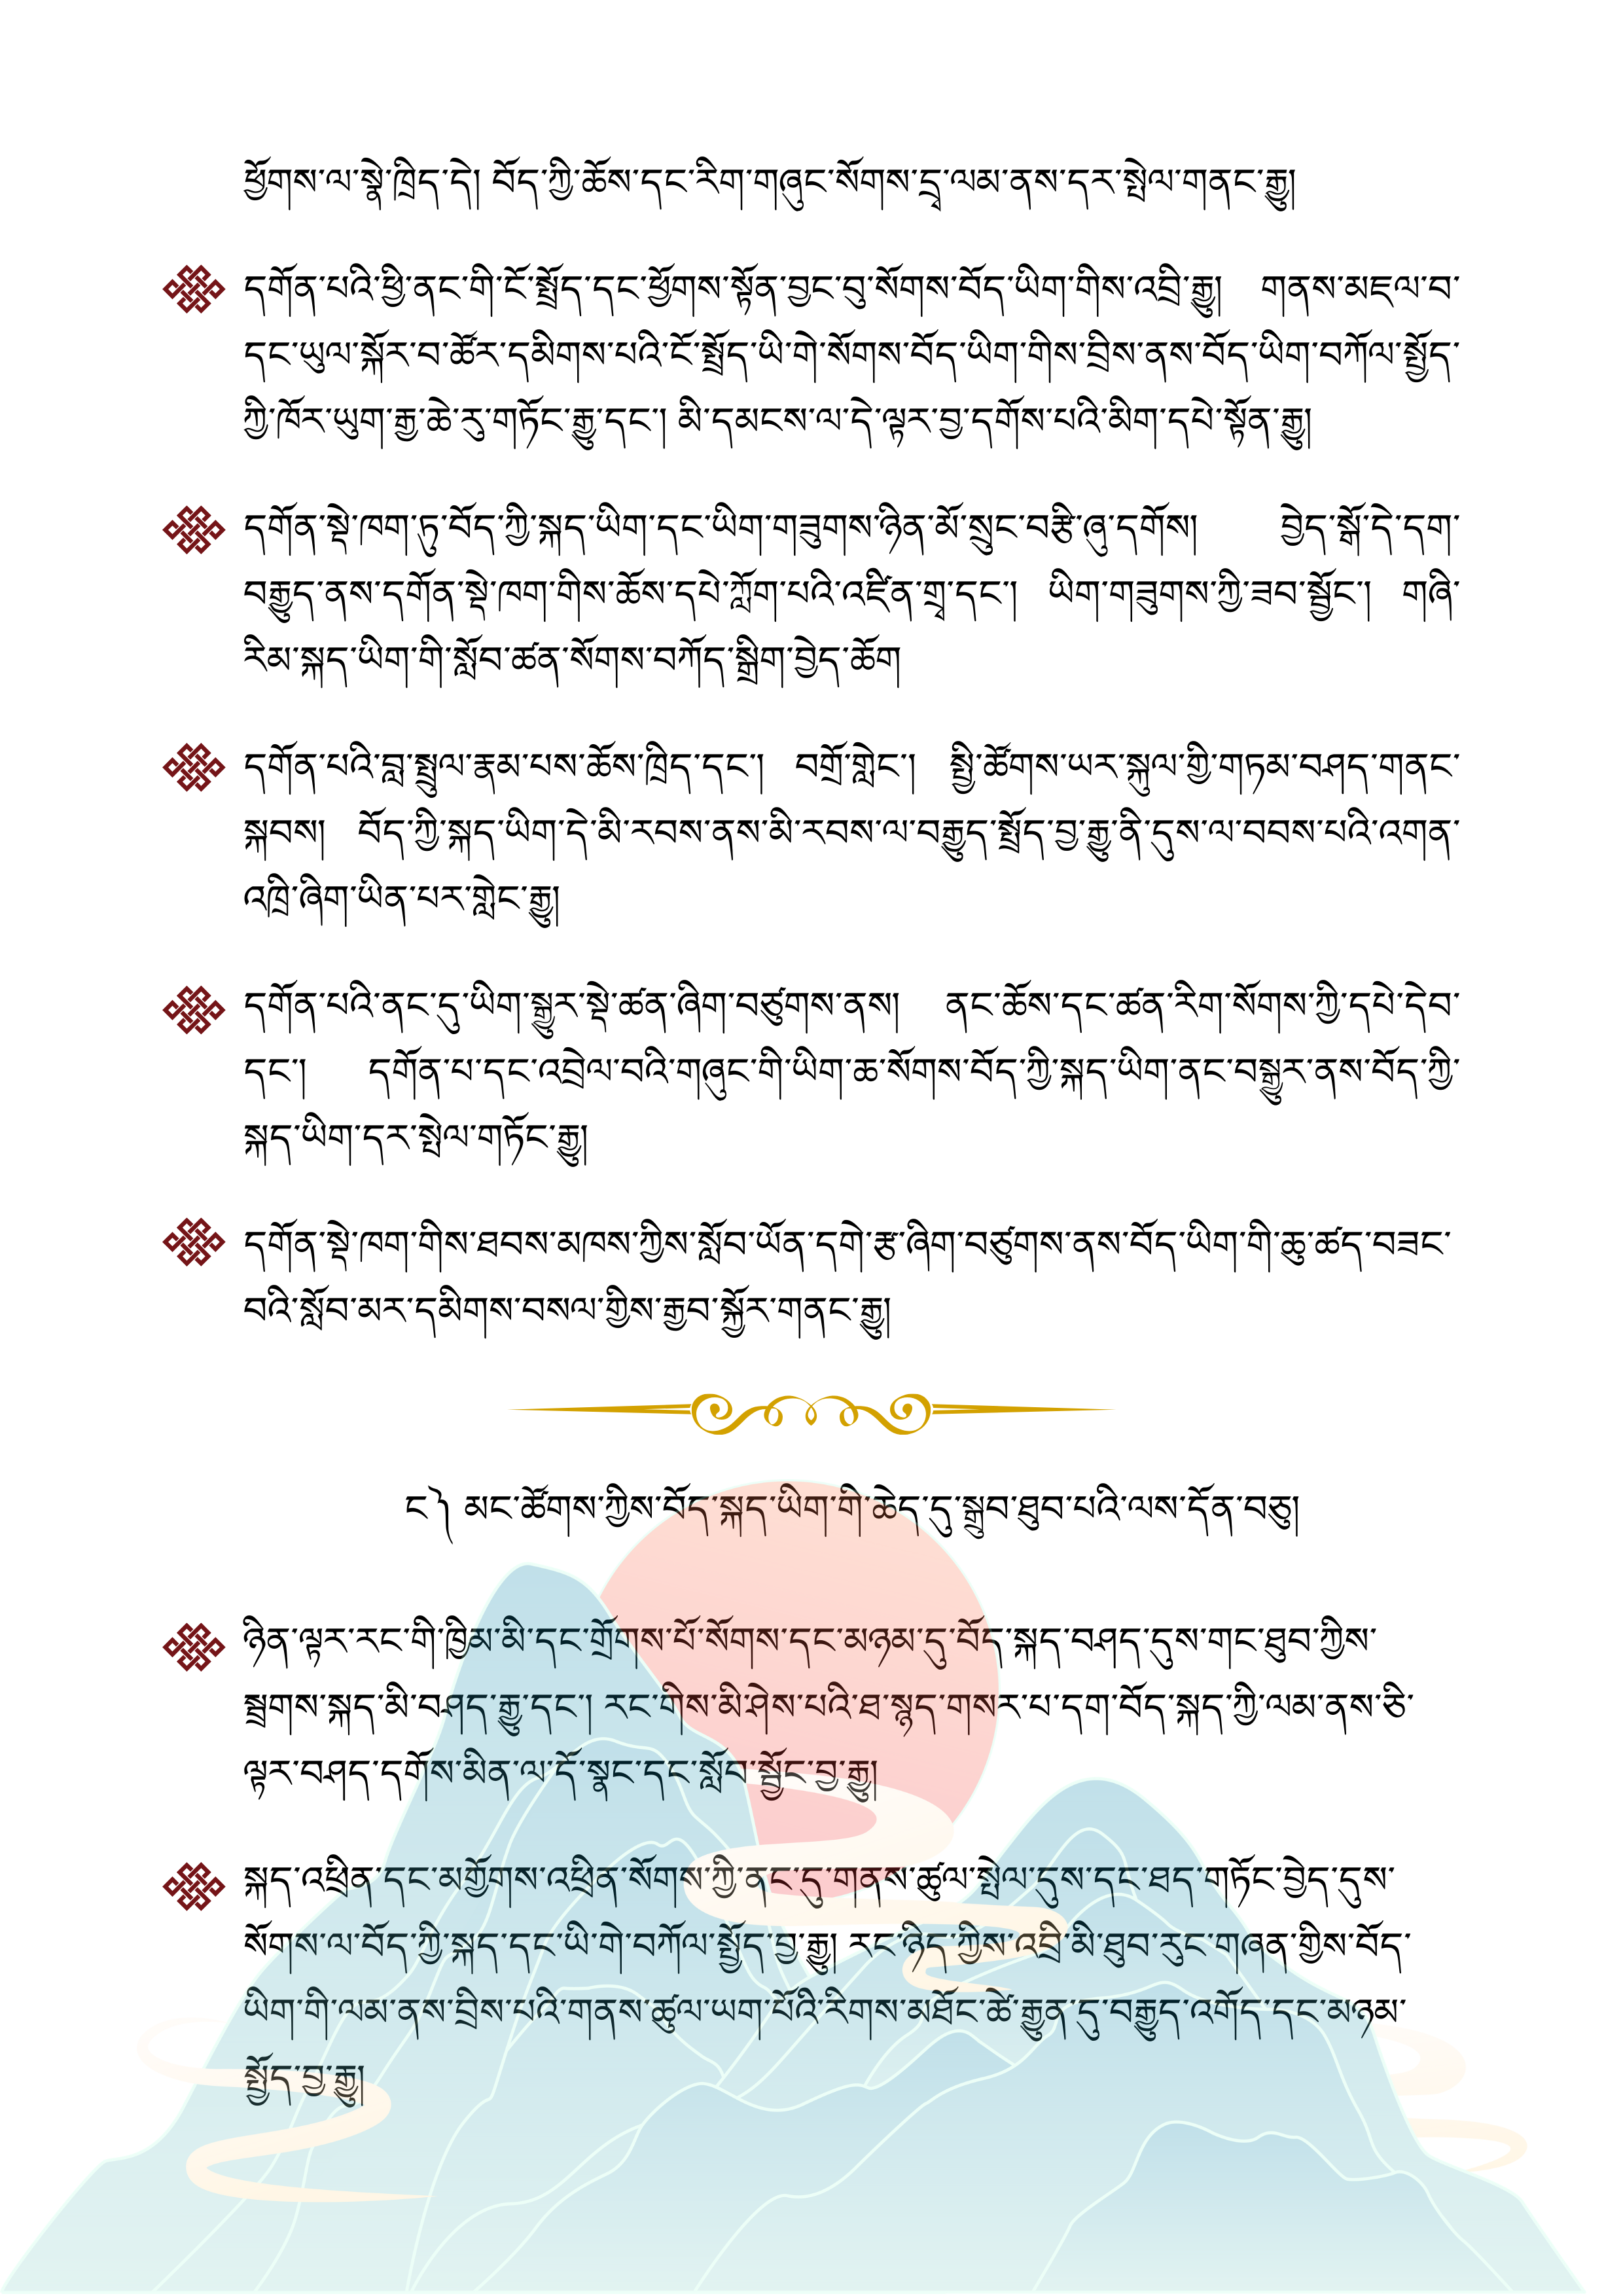 ཕྱོགས་ལ་སྣེ་ཁྲིད་དེ། བོད་ཀྱི་ཆོས་དང་རིག་གཞུང་སོགས་དྲྭ་ལམ་ནས་དར་སྤེལ་གནང་རྒྱུ།
དགོན་པའི་ཕྱི་ནང་གི་ངོ་སྤྲོད་དང་ཕྱོགས་སྟོན་བྱང་བུ་སོགས་བོད་ཡིག་གིས་འབྲི་རྒྱུ། གནས་མཇལ་བ་
དང་ཡུལ་སྐོར་བ་ཚོར་དམིགས་པའི་ངོ་སྤྲོད་ཡི་གེ་སོགས་བོད་ཡིག་གིས་བྲིས་ནས་བོད་ཡིག་བཀོལ་སྤྱོད་
ཀྱི་ཁོར་ཡུག་རྒྱ་ཆེ་རུ་གཏོང་རྒྱུ་དང་། མི་དམངས་ལ་དེ་ལྟར་བྱ་དགོས་པའི་མིག་དཔེ་སྟོན་རྒྱུ།
དགོན་སྡེ་ཁག་ཏུ་བོད་ཀྱི་སྐད་ཡིག་དང་ཡིག་གཟུགས་ཉིན་མོ་སྲུང་བརྩི་ཞུ་དགོས། བྱེད་སྒོ་དེ་དག་
བརྒྱུད་ནས་དགོན་སྡེ་ཁག་གིས་ཆོས་དཔེ་ཀློག་པའི་འཛིན་གྲྭ་དང་། ཡིག་གཟུགས་ཀྱི་ཟབ་སྦྱོང་། གཞི་
རིམ་སྐད་ཡིག་གི་སློབ་ཚན་སོགས་བཀོད་སྒྲིག་བྱེད་ཆོག
དགོན་པའི་བླ་སྤྲུལ་རྣམ་པས་ཆོས་ཁྲིད་དང་། བགྲོ་གླེང་། སྤྱི་ཚོགས་ཡར་སྐུལ་གྱི་གཏམ་བཤད་གནང་
སྐབས། བོད་ཀྱི་སྐད་ཡིག་དེ་མི་རབས་ནས་མི་རབས་ལ་བརྒྱུད་སྤྲོད་བྱ་རྒྱུ་ནི་དུས་ལ་བབས་པའི་འགན་
འཁྲི་ཞིག་ཡིན་པར་གླེང་རྒྱུ།
དགོན་པའི་ནང་དུ་ཡིག་སྒྱུར་སྡེ་ཚན་ཞིག་བཙུགས་ནས། ནང་ཆོས་དང་ཚན་རིག་སོགས་ཀྱི་དཔེ་དེབ་
དང་། དགོན་པ་དང་འབྲེལ་བའི་གཞུང་གི་ཡིག་ཆ་སོགས་བོད་ཀྱི་སྐད་ཡིག་ནང་བསྒྱུར་ནས་བོད་ཀྱི་
སྐད་ཡིག་དར་སྤེལ་གཏོང་རྒྱུ།
དགོན་སྡེ་ཁག་གིས་ཐབས་མཁས་ཀྱིས་སློབ་ཡོན་དགེ་རྩ་ཞིག་བཙུགས་ནས་བོད་ཡིག་གི་ཆུ་ཚད་བཟང་
བའི་སློབ་མར་དམིགས་བསལ་གྱིས་རྒྱབ་སྐྱོར་གནང་རྒྱུ།
ང༽ མང་ཚོགས་ཀྱིས་བོད་སྐད་ཡིག་གི་ཆེད་དུ་སྒྲུབ་ཐུབ་པའི་ལས་དོན་བཅུ།
ཉིན་ལྟར་རང་གི་ཁྱིམ་མི་དང་གྲོགས་པོ་སོགས་དང་མཉམ་དུ་བོད་སྐད་བཤད་དུས་གང་ཐུབ་ཀྱིས་
སྦྲགས་སྐད་མི་བཤད་རྒྱུ་དང་། རང་གིས་མི་ཤེས་པའི་ཐ་སྙད་གསར་པ་དག་བོད་སྐད་ཀྱི་ལམ་ནས་ཅི་
ལྟར་བཤད་དགོས་མིན་ལ་དོ་སྣང་དང་སློབ་སྦྱོང་བྱ་རྒྱུ།
སྐད་འཕྲིན་དང་མགྱོགས་འཕྲིན་སོགས་ཀྱི་ནང་དུ་གནས་ཚུལ་སྤེལ་དུས་དང་ཐད་གཏོང་བྱེད་དུས་
སོགས་ལ་བོད་ཀྱི་སྐད་དང་ཡི་གེ་བཀོལ་སྤྱོད་བྱ་རྒྱུ། རང་ཉིད་ཀྱིས་འབྲི་མི་ཐུབ་རུང་གཞན་གྱིས་བོད་
ཡིག་གི་ལམ་ནས་བྲིས་པའི་གནས་ཚུལ་ཡག་པོའི་རིགས་མཐོང་ཚེ་རྒྱུན་དུ་བརྒྱུད་འགོད་དང་མཉམ་
སྤྱོད་བྱ་རྒྱུ།